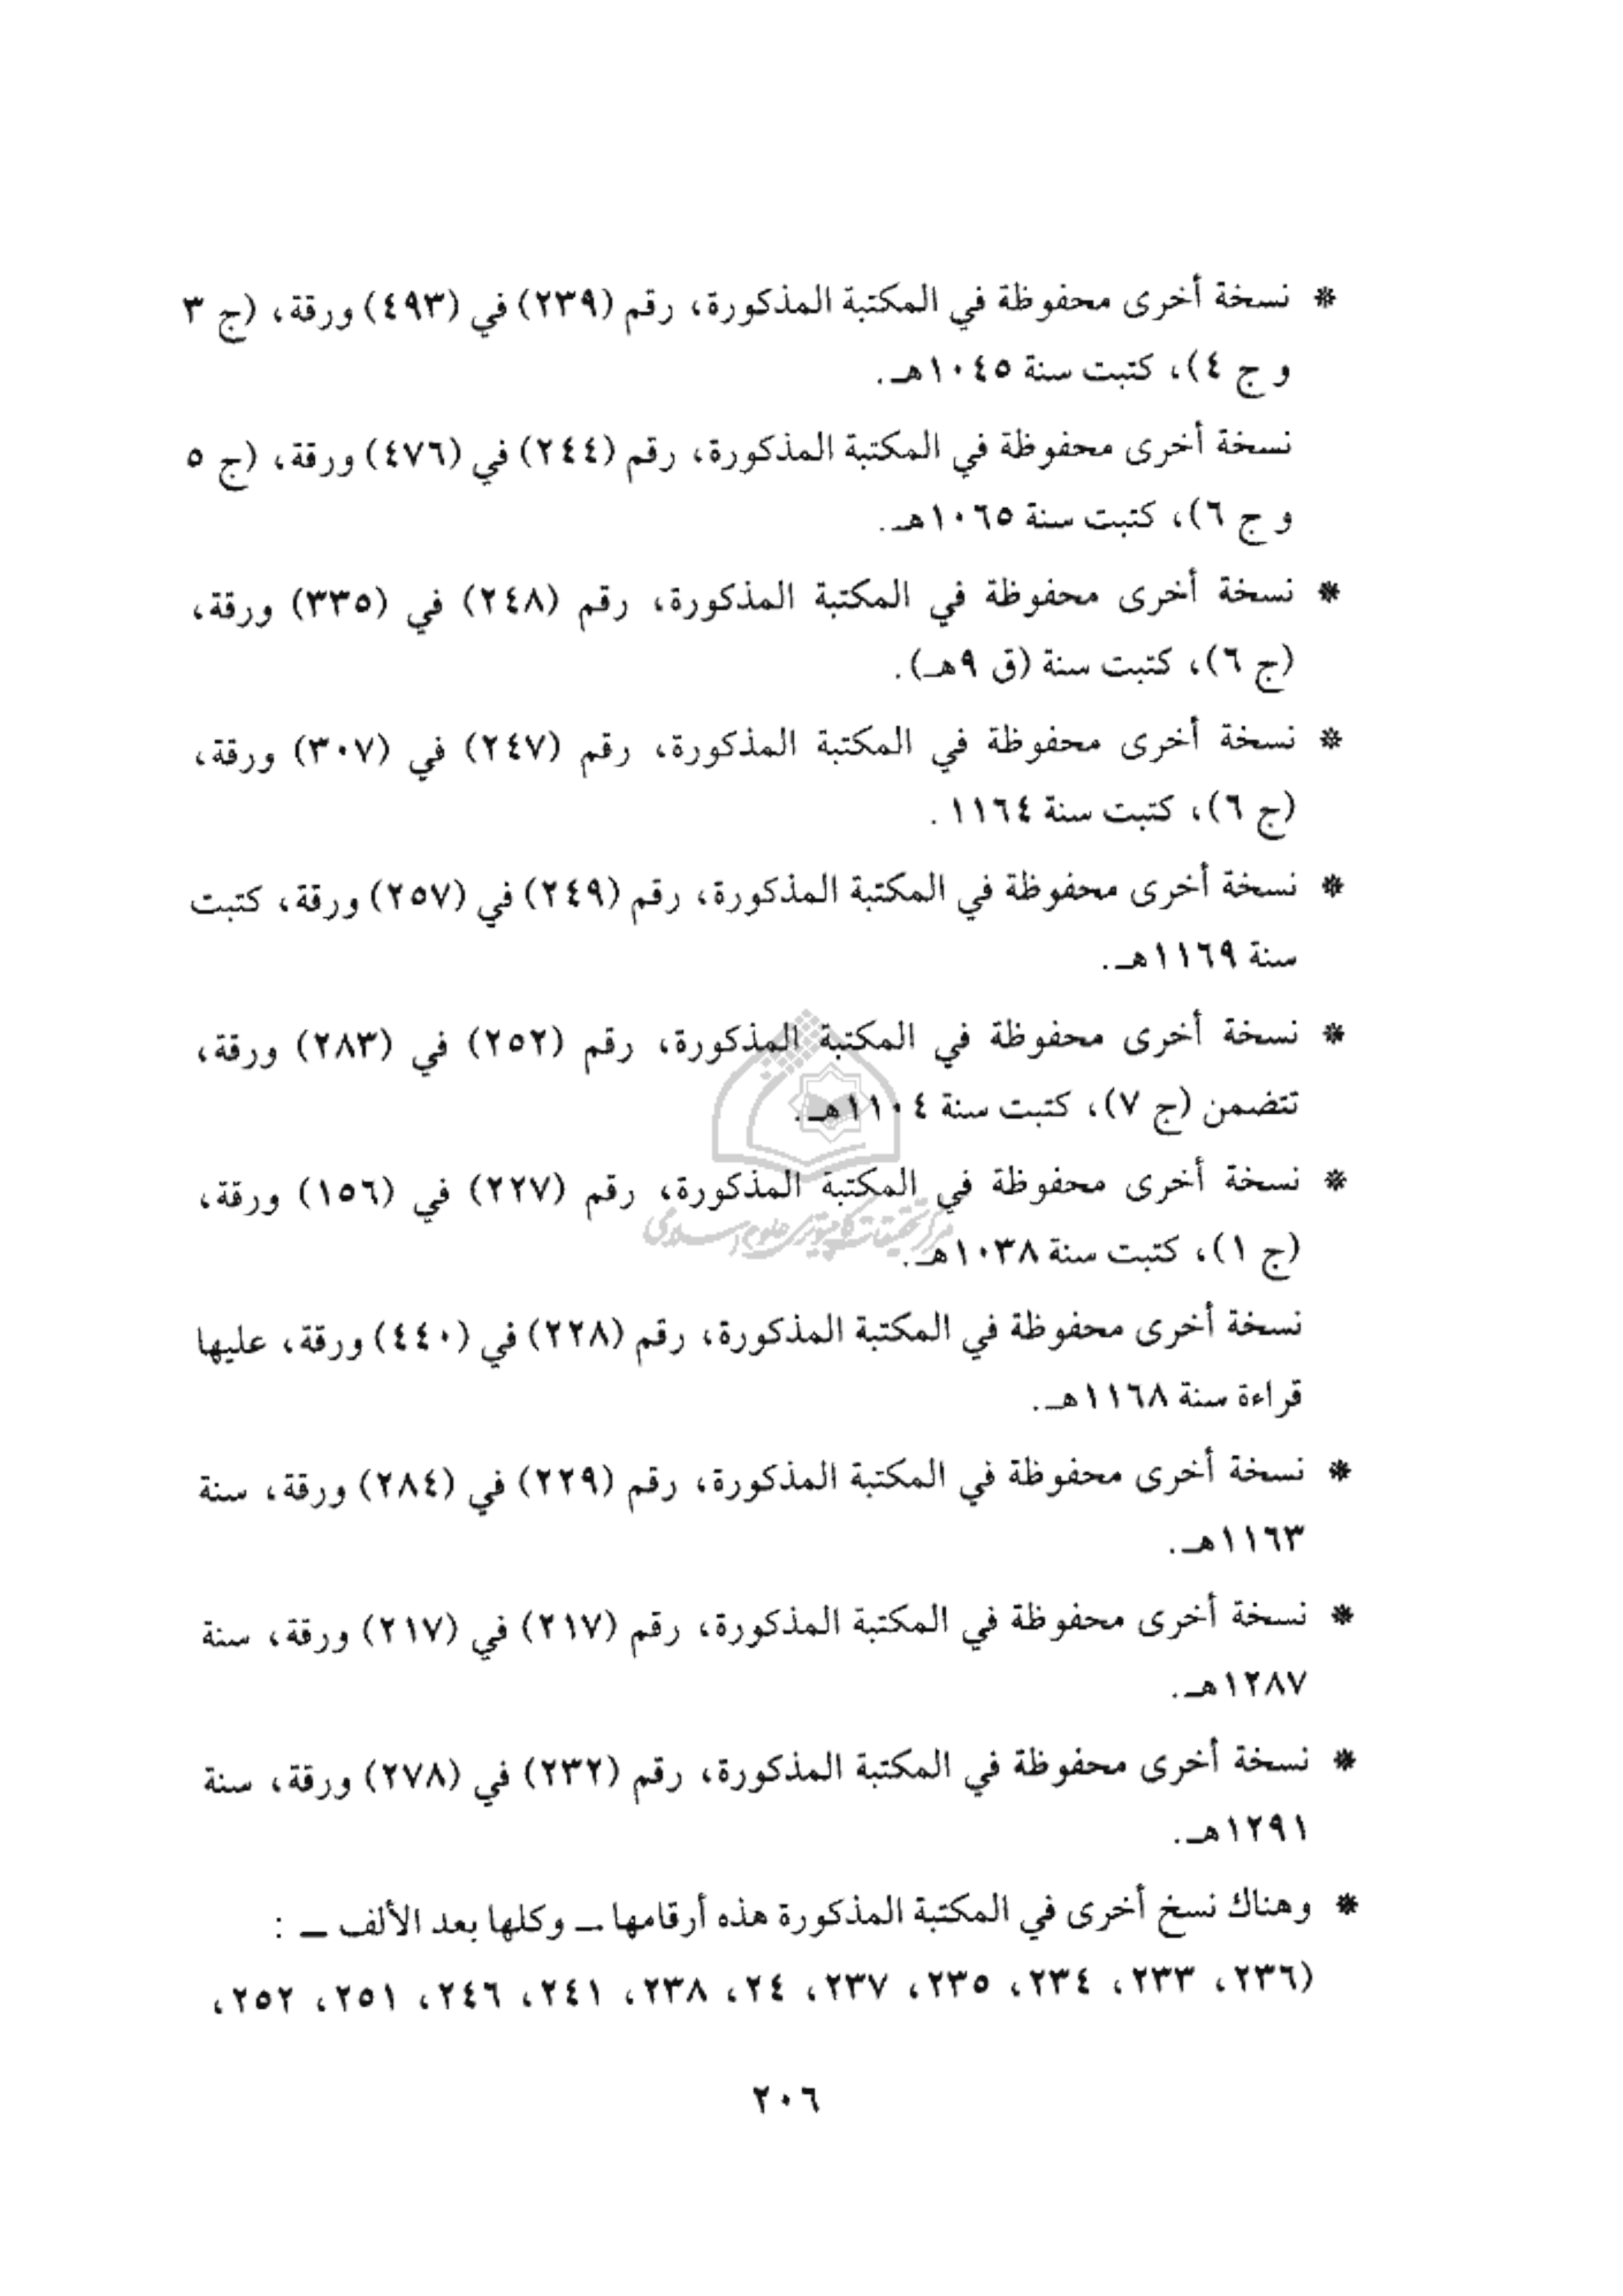 * نسخة أخرى محفوظة في المكتبة المذكورة، رقم (٢٣٩) في (٤٩٣) ورقة، (ج ٣
و ج ٤)، كتبت سنة ١٠٤٥هـ.
نسخة أخرى محفوظة في المكتبة المذكورة، رقم (٢٤٤) في (٤٧٦) ورقة، (ج ٥
و ج ٦)، كتبت سنة ١٠٦٥هـ.
* نسخة أخرى محفوظة في المكتبة المذكورة، رقم (٢٤٨) في (٣٣٥) ورقة،
(ج ٦)، كتبت سنة (ق ٩هـ).
* نسخة أخرى محفوظة في المكتبة المذكورة، رقم (٢٤٧) في (٣٠٧) ورقة،
(ج ٦)، كتبت سنة ١١٦٤ .
* نسخة أخرى محفوظة في المكتبة المذكورة، رقم (٢٤٩) في (٢٥٧) ورقة، كتبت
سنة ١١٦٩هـ.
* نسخة أخرى محفوظة في المكتبة المذكورة، رقم (٢٥٢) في (٢٨٣) ورقة،
تتضمن (ج ٧)، كتبت سنة ١١٠٤هـ.
* نسخة أخرى محفوظة في المكتبة المذكورة، رقم (٢٢٧) في (١٥٦) ورقة،
مركز تحقيقات كامپيوتري علوم اسلامي
(ج ١)، كتبت سنة ١٠٣٨هـ.
نسخة أخرى محفوظة في المكتبة المذكورة، رقم (٢٢٨) في (٤٤٠) ورقة، عليها
قراءة سنة ١١٦٨هـ.
* نسخة أخرى محفوظة في المكتبة المذكورة، رقم (٢٢٩) في (٢٨٤) ورقة، سنة
١١٦٣هـ.
* نسخة أخرى محفوظة في المكتبة المذكورة، رقم (٢١٧) في (٢١٧) ورقة، سنة
١٢٨٧هـ.
* نسخة أخرى محفوظة في المكتبة المذكورة، رقم (٢٣٢) في (٢٧٨) ورقة، سنة
١٢٩١هـ.
* وهناك نسخ أخرى في المكتبة المذكورة هذه أرقامها ــ وكلها بعد الألف ــ :
(٢٣٦، ٢٣٣، ٢٣٤، ٢٣٥، ٢٣٧، ٢٤، ٢٣٨، ٢٤١، ٢٤٦، ٢٥١، ٢٥٢،
٢٠٦